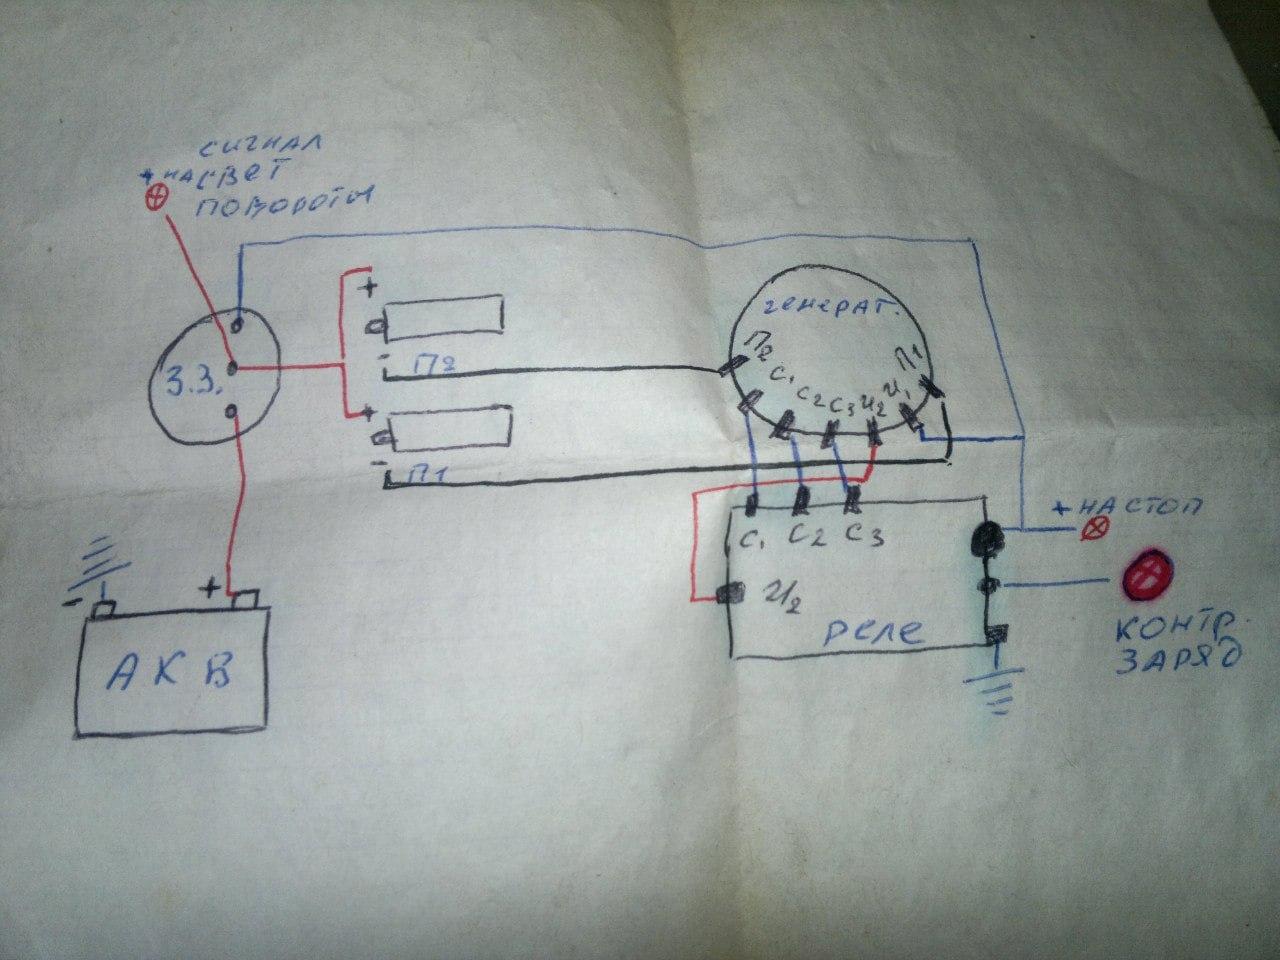 СИГНАЛ
+ НА СВЕТ
ПОВОРОТЫ
З.З.
+
-
П2
+
-
П1
генерат.
П2
С1
С2
С3
И2
И1
П1
С1
С2
С3
И2
реле
+ НА СТОП
КОНТР.
ЗАРЯД
-
+
АКВ